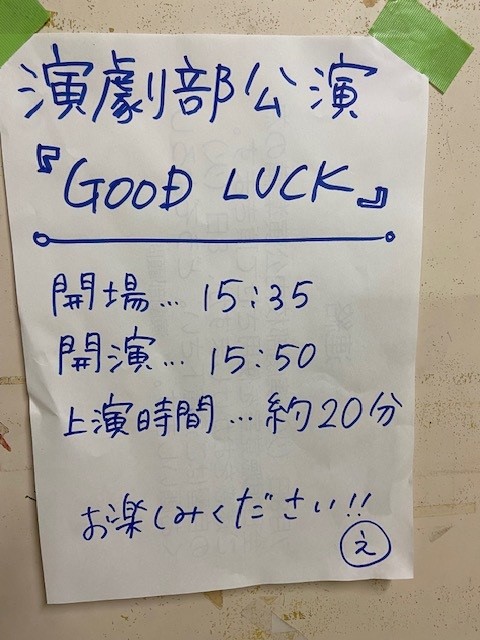 演劇部公演
『GOOD LUCK』
開場… 15:35
開演… 15:50
上演時間 … 約20分
お楽しみください!!
え